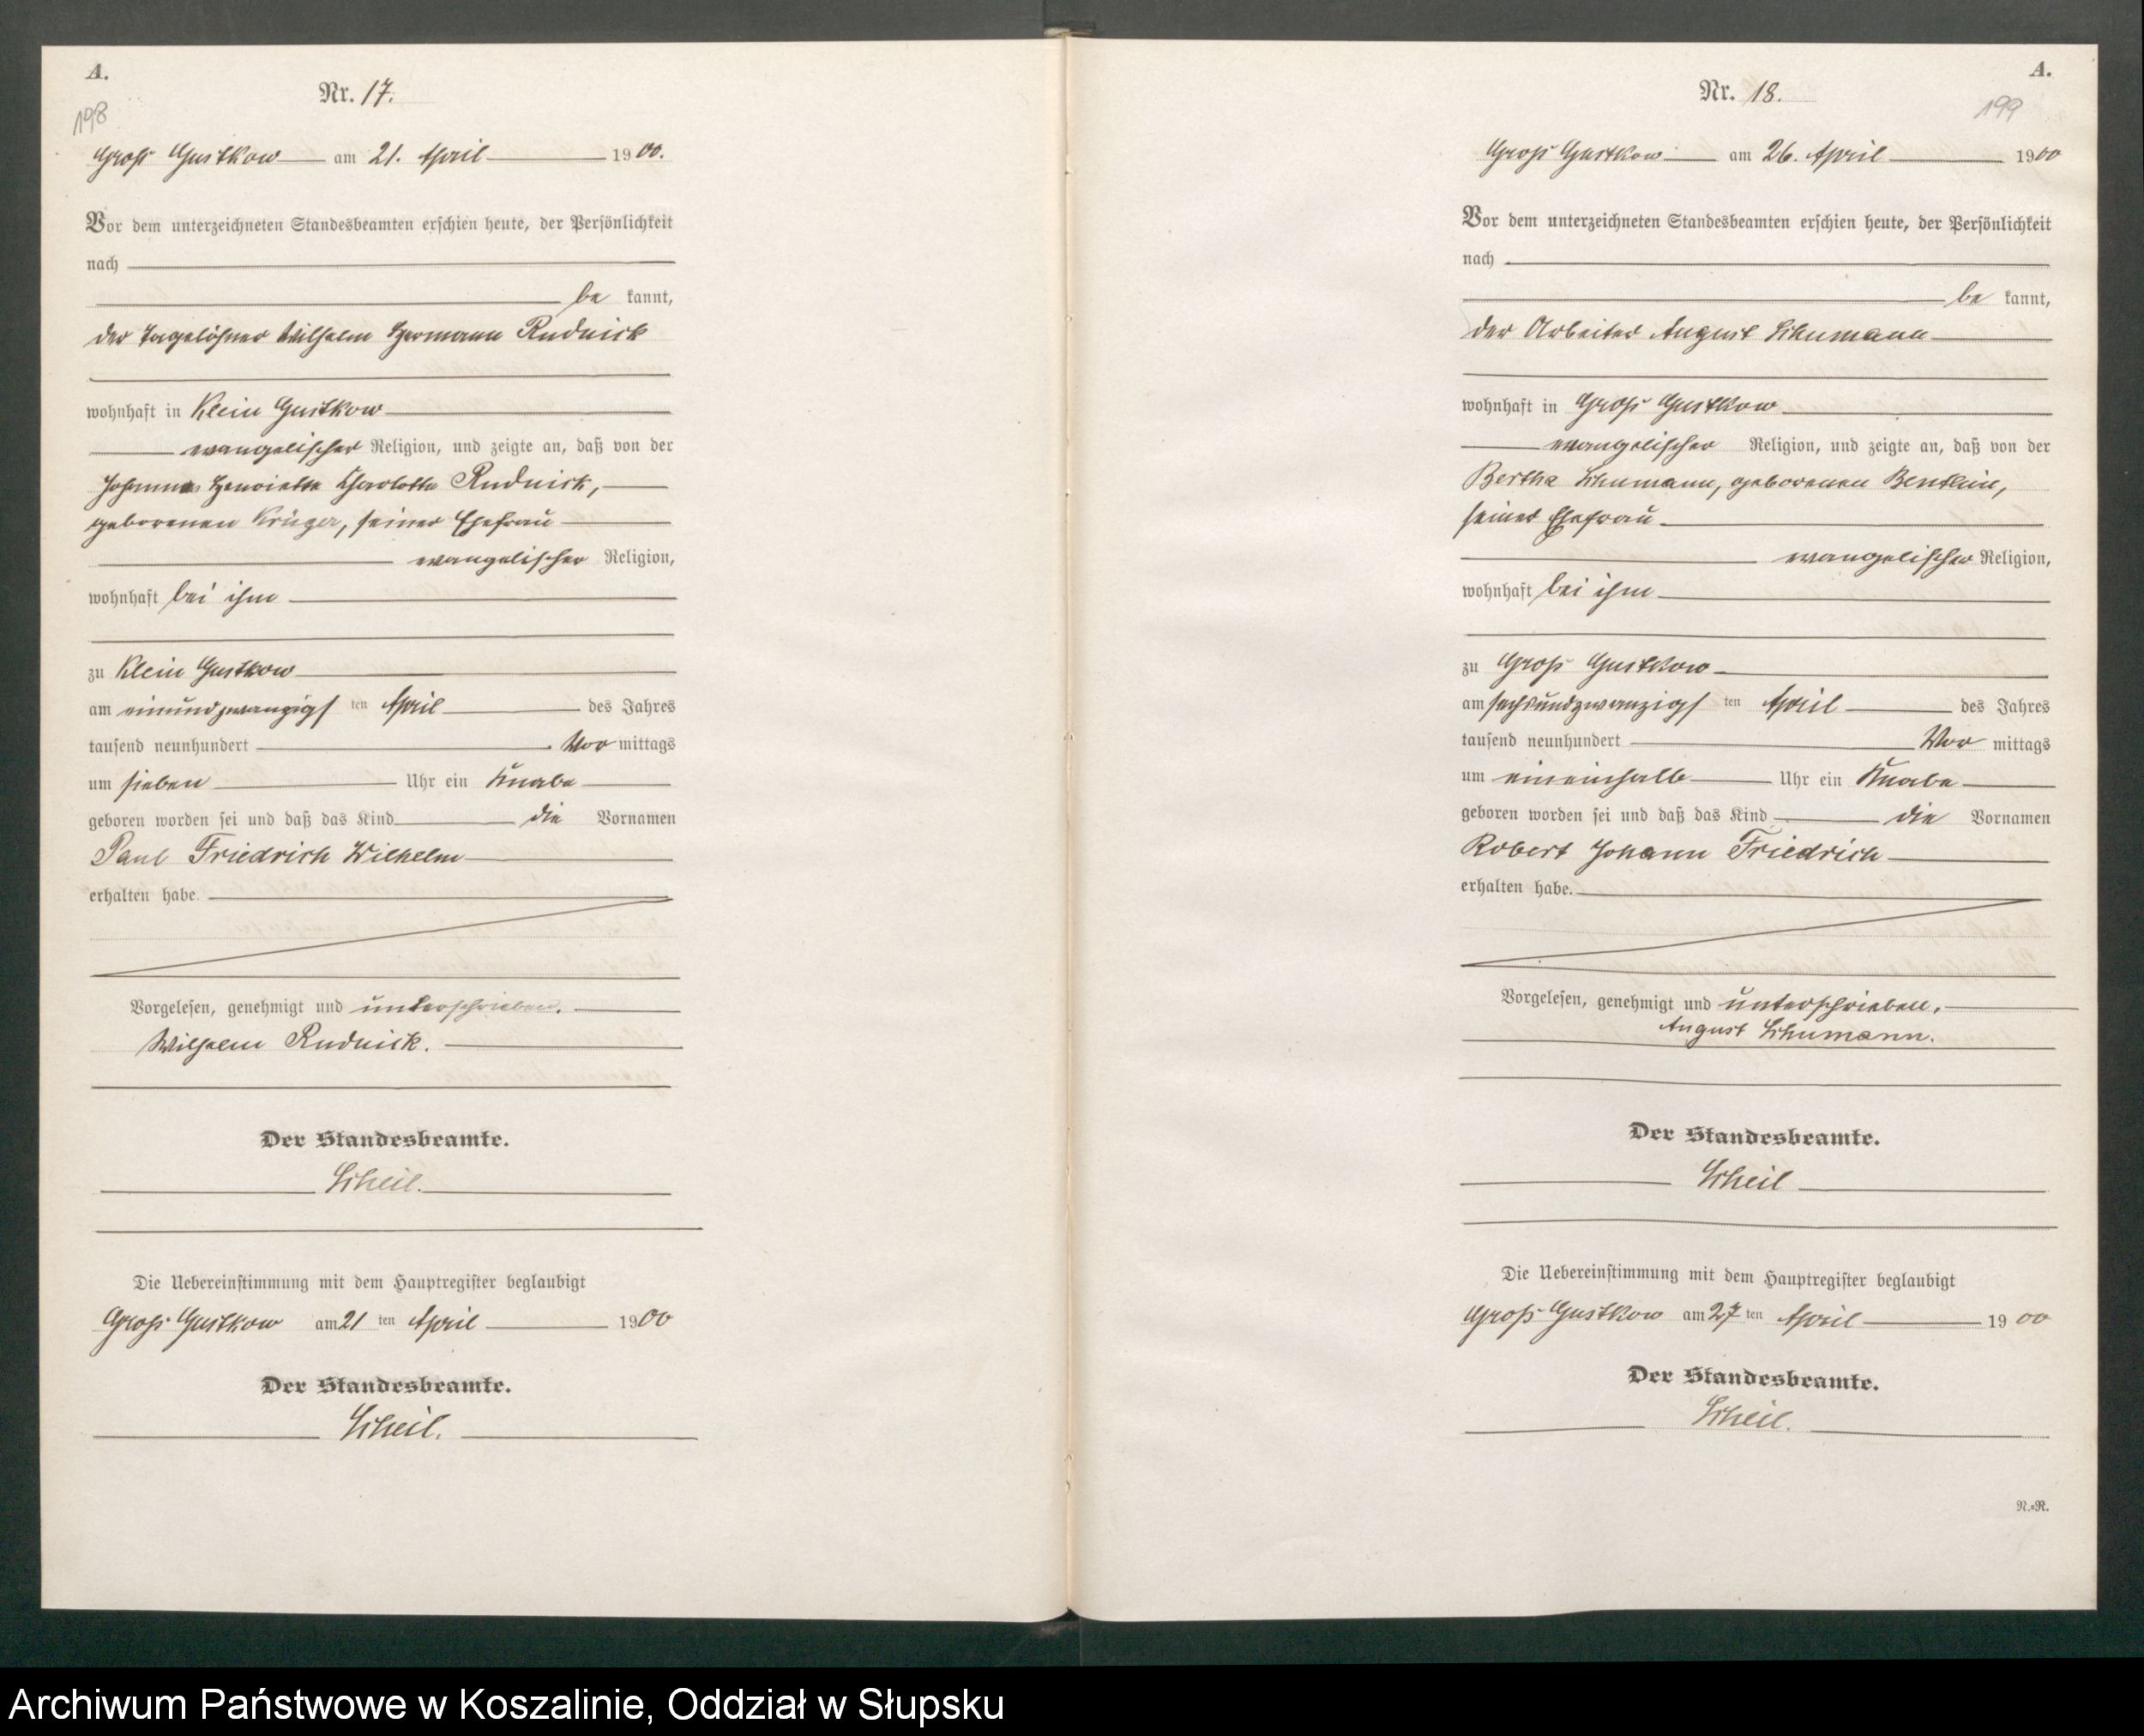 A.
198
Nr. 17.
Groß Gustkow am 21. April 1900.
Vor dem unterzeichneten Standesbeamten erschien heute, der Persönlichkeit
nach
be kannt,
der Tagelöhner Wilhelm Hermann Rudnick
wohnhaft in Klein Gustkow
evangelischer Religion, und zeigte an, daß von der
Henriette Charlotte Rudnick,
geborenen Krüger, seiner Ehefrau
evangelischer Religion,
wohnhaft bei ihm
zu Klein Gustkow
am einundzwanzigsten April des Jahres
tausend neunhundert Vor mittags
um sieben Uhr ein Knabe
geboren worden sei und daß das Kind die Vornamen
Paul Friedrich Wilhelm
erhalten habe.
Vorgelesen, genehmigt und unterschrieben.
Wilhelm Rudnick.
Der Standesbeamte.
Scheil.
Die Uebereinstimmung mit dem Hauptregister beglaubigt
Groß Gustkow am 21 ten April 1900
Der Standesbeamte.
Scheil.
A.
199
Nr. 18.
Groß Gustkow am 26. April 1900
Vor dem unterzeichneten Standesbeamten erschien heute, der Persönlichkeit
nach
be kannt,
der Arbeiter August Schumann
wohnhaft in Groß Gustkow
evangelischer Religion, und zeigte an, daß von der
Bertha Schumann, geborenen
seiner Ehefrau
evangelischer Religion,
wohnhaft bei ihm
zu Groß Gustkow
am sechsundzwanzigsten April des Jahres
tausend neunhundert Vor mittags
um eineinhalb Uhr ein Knabe
geboren worden sei und daß das Kind die Vornamen
Robert Johann Friedrich
erhalten habe.
Vorgelesen, genehmigt und unterschrieben.
August Schumann.
Der Standesbeamte.
Scheil
Die Uebereinstimmung mit dem Hauptregister beglaubigt
Groß Gustkow am 27 ten April 1900
Der Standesbeamte.
Scheil.
N.=R.
Archiwum Państwowe w Koszalinie, Oddział w Słupsku